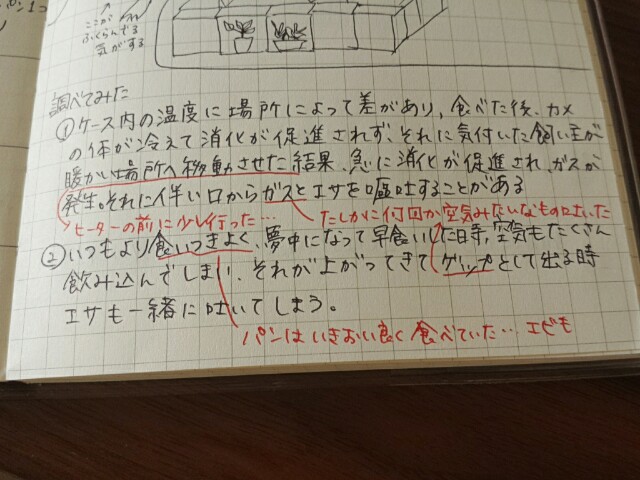 ここが
ふくらんでる
気がする
調べてみた
①ケース内の温度に場所によって差があり、食べた後、カメ
の体が冷えて消化が促進されず、それに気付いた飼い主が
暖かい場所へ移動させた結果、急に消化が促進され、ガスが
発生。それに伴い口からガスとエサを嘔吐することがある
ヒーターの前に少し行った…
たしかに何回か空気みたいなもの吐いた
②いつもより食いつきよく、夢中になって早食いした時、空気もたくさん
飲み込んでしまい、それが上がってきてゲップとして出る時
エサも一緒に吐いてしまう。
パンはいきおい良く食べていた… エビも